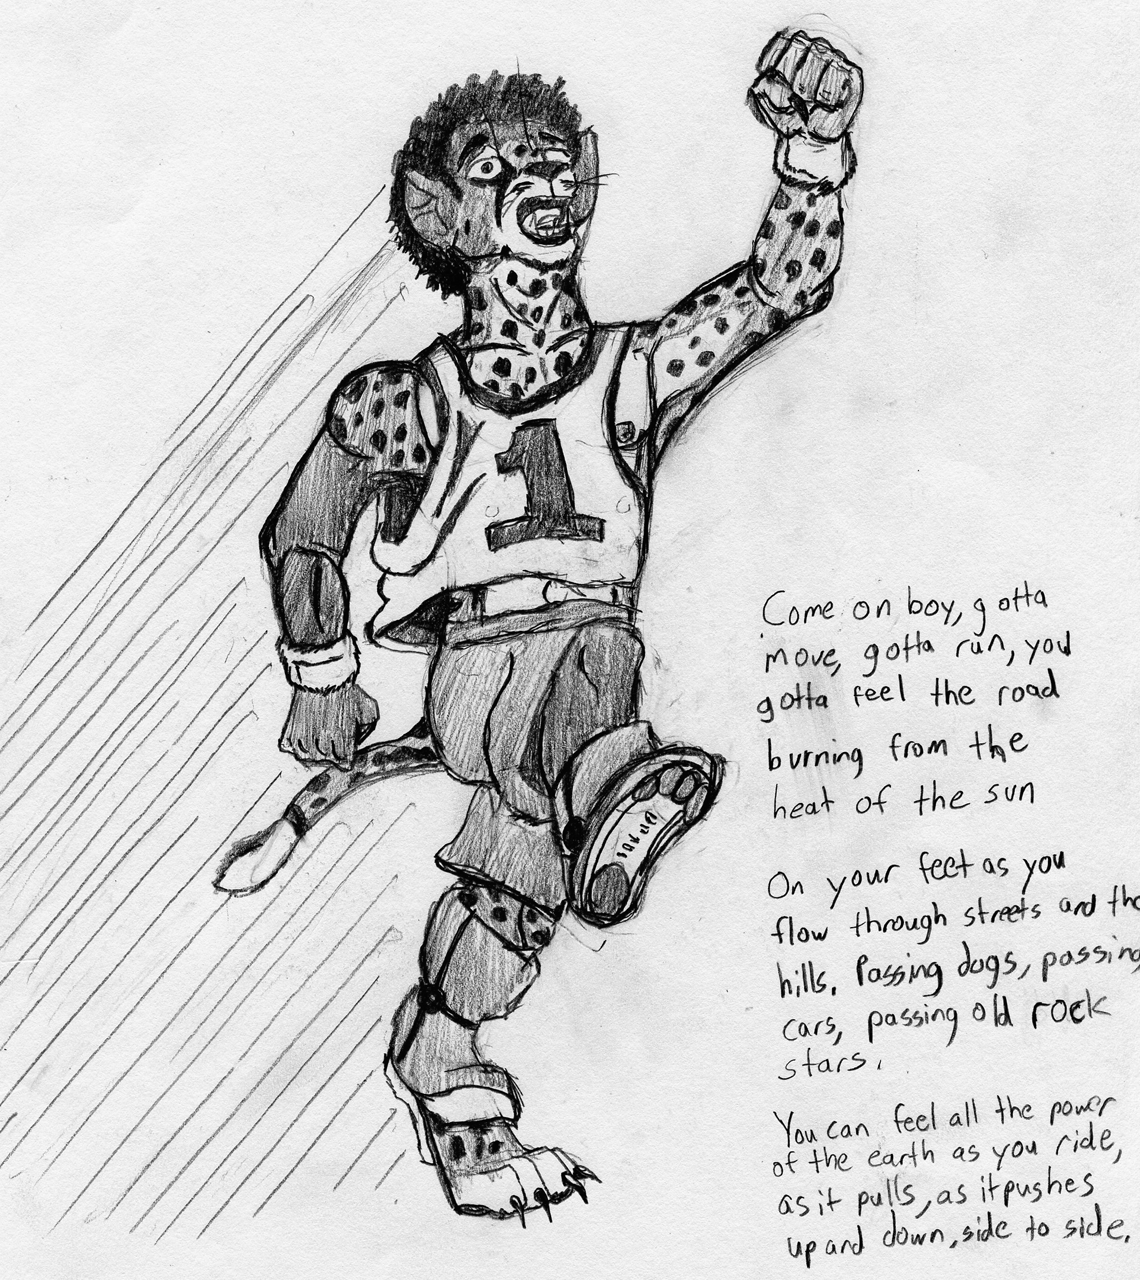 1
Come on boy, gotta
move, gotta run, you
gotta feel the road
burning from the
heat of the sun
On your feet as you
flow through streets and the
hills. Passing dogs, passing
cars, passing old rock
stars.
You can feel all the power
of the earth as you ride,
as it pulls, as it pushes
up and down, side to side.